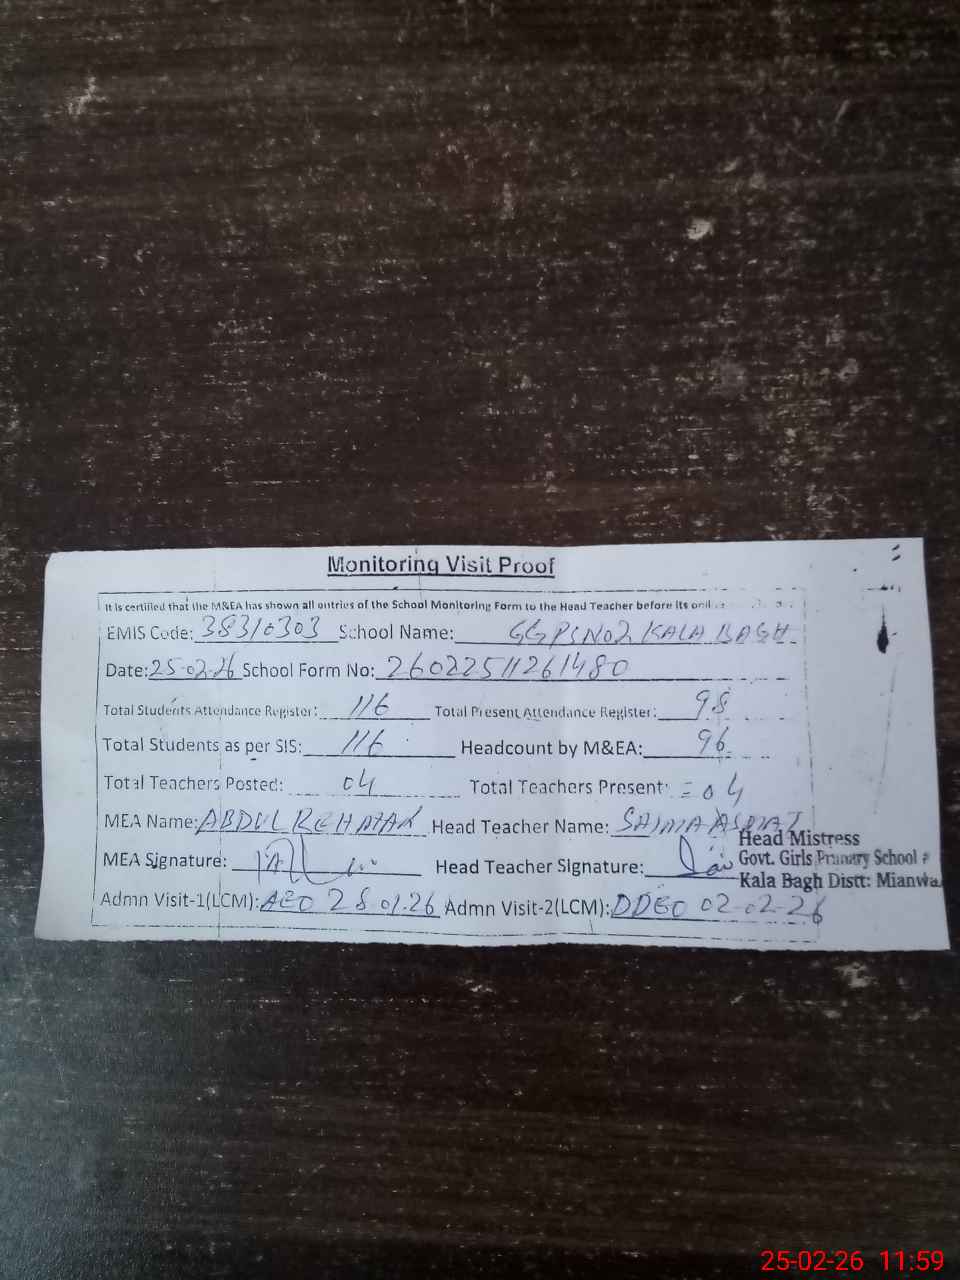 Monitoring Visit Proof
It is certified that the M&EA has shown all entries of the School Monitoring Form to the Head Teacher before its
EMIS Code: 38310303 School Name: GGPS No2 KALA BAGH
Date: 25-02-26 School Form No: 26022511261480
Total Students Attendance Register: 116 Total Present Attendance Register: 98
Total Students as per SIS: 116 Headcount by M&EA: 96
Total Teachers Posted: 04 Total Teachers Present: = 04
MEA Name: ABDUL REHMAN Head Teacher Name: SAIMA
MEA Signature: Head Teacher Signature:
Head Mistress
Govt. Girls Primary School
Kala Bagh Distt: Mianwa
Admn Visit-1(LCM): AEO 28.01.26 Admn Visit-2(LCM): DDEO 02-02-26
25-02-26 11:59